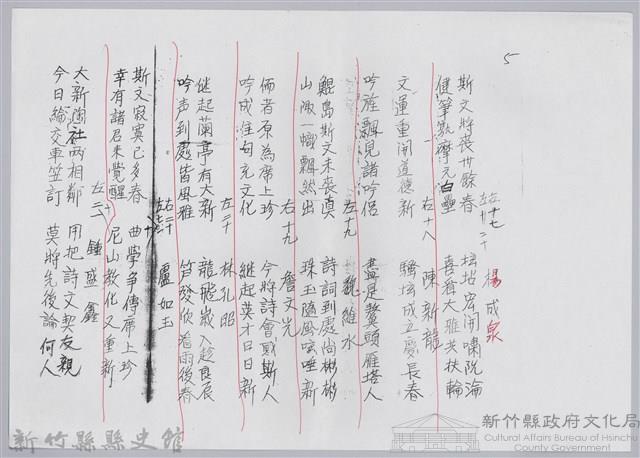 5
斯文將喪卅餘春 坛坫宏開嘯阮淪
左十七
左廿二十 楊成泉
健筆敦摩元白壘 喜看大雅共扶輪
一 右十八 陳新龍
文運重開道德新 騷坛成立慶長春
吟旌飄見諸吟侶 盡是鰲頭雁塔人
左十九 魏維水
鯤島斯文未喪真 詩詞到處尚彬彬
山陬一幟飄然出 珠玉隨風咳唾新
右十九 詹文光
倆者原為席上珍 今將詩會戛斯人
吟成佳句光文化 繼起英才日日新
左二十 林孔昭
継起蘭亭有大新 龍飛歲入起良辰
吟声到處皆風雅 笋發欣看雨後春
右二十
左 盧如玉
斯文寂寞已多春 曲學争傳席上珍
幸有諸君来覺醒 尼山教化又重新
左二十 鍾盛鑫
大新陶社両相鄰 用把詩文契友親
今日論交車笠訂 莫將先後論何人
新竹縣縣史館
新竹縣政府文化局
Cultural Affairs Bureau of Hsinchu
County Government